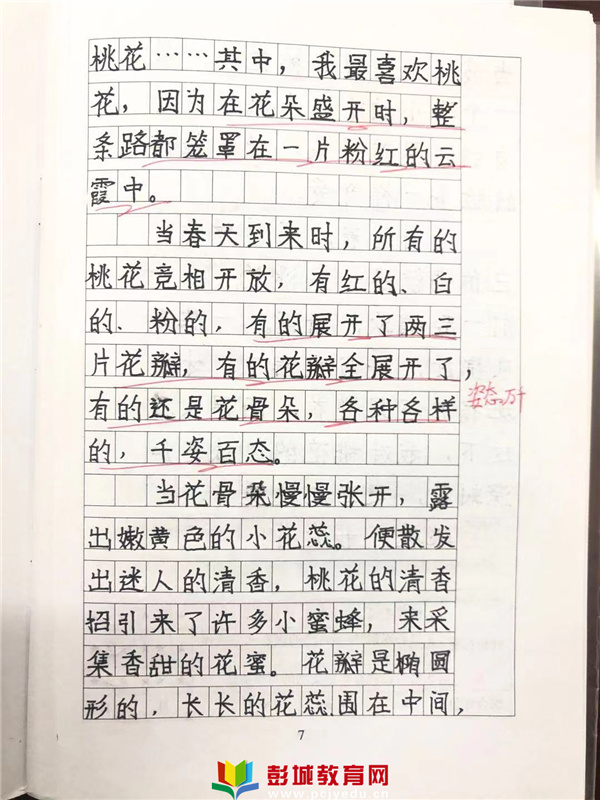 桃花……其中，我最喜欢桃
花，因为在花朵盛开时，整
条路都笼罩在一片粉红的云
霞中。
当春天到来时，所有的
桃花竞相开放，有红的、白
的、粉的，有的展开了两三
片花瓣，有的花瓣全展开了，
姿态万千
有的还是花骨朵，各种各样
的，千姿百态。
当花骨朵慢慢张开，露
出嫩黄色的小花蕊。便散发
出迷人的清香，桃花的清香
招引来了许多小蜜蜂，来采
集香甜的花蜜。花瓣是椭圆
形的，长长的花蕊围在中间，
7
彭城教育网
www.pcjyedu.cn